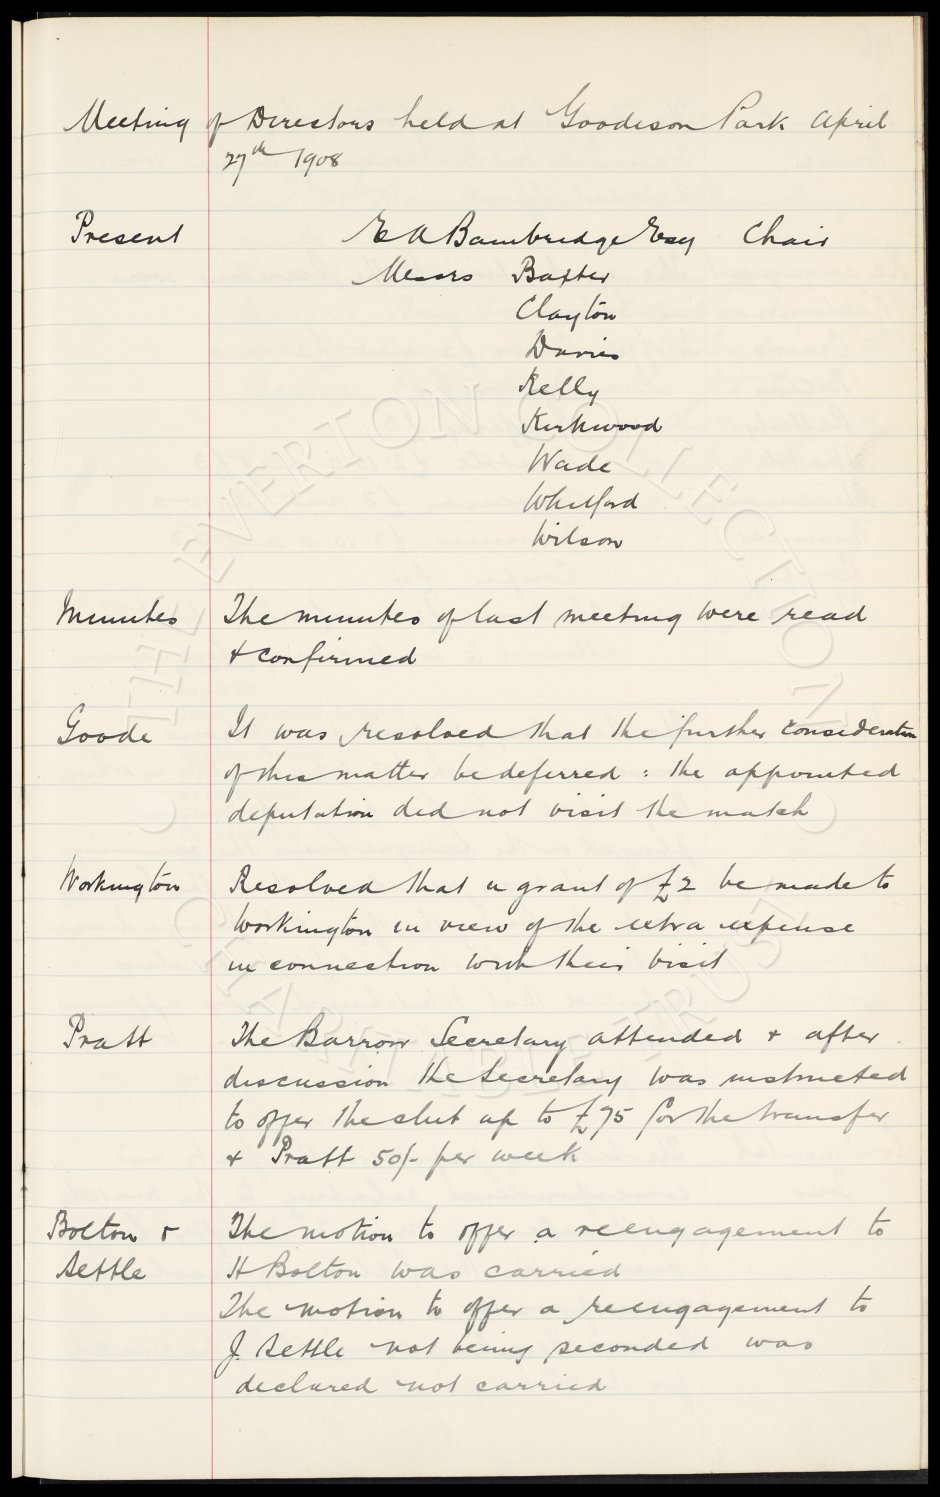 Meeting of Directors held at Goodison Park April
27th 1908
Present E A Bainbridge Esq Chair
Messrs Baxter
Clayton
Davies
Kelly
Kirkwood
Wade
Whitford
Wilson
Minutes The minutes of last meeting were read
& confirmed
Goode It was resolved that the further consideration
of this matter be deferred : the appointed
deputation did not visit the match
Workington Resolved that a grant of £2 be made to
Workington in view of the extra expense
in connection with their visit
Pratt The Barrow Secretary attended & after
discussion the Secretary was instructed
to offer the club up to £75 for the transfer
& Pratt 50/- per week
Bolton & The motion to offer a reengagement to
Settle H Bolton was carried
The motion to offer a reengagement to
J. Settle not being seconded was
declared not carried
THE EVERTON COLLECTION
CHARITABLE TRUST